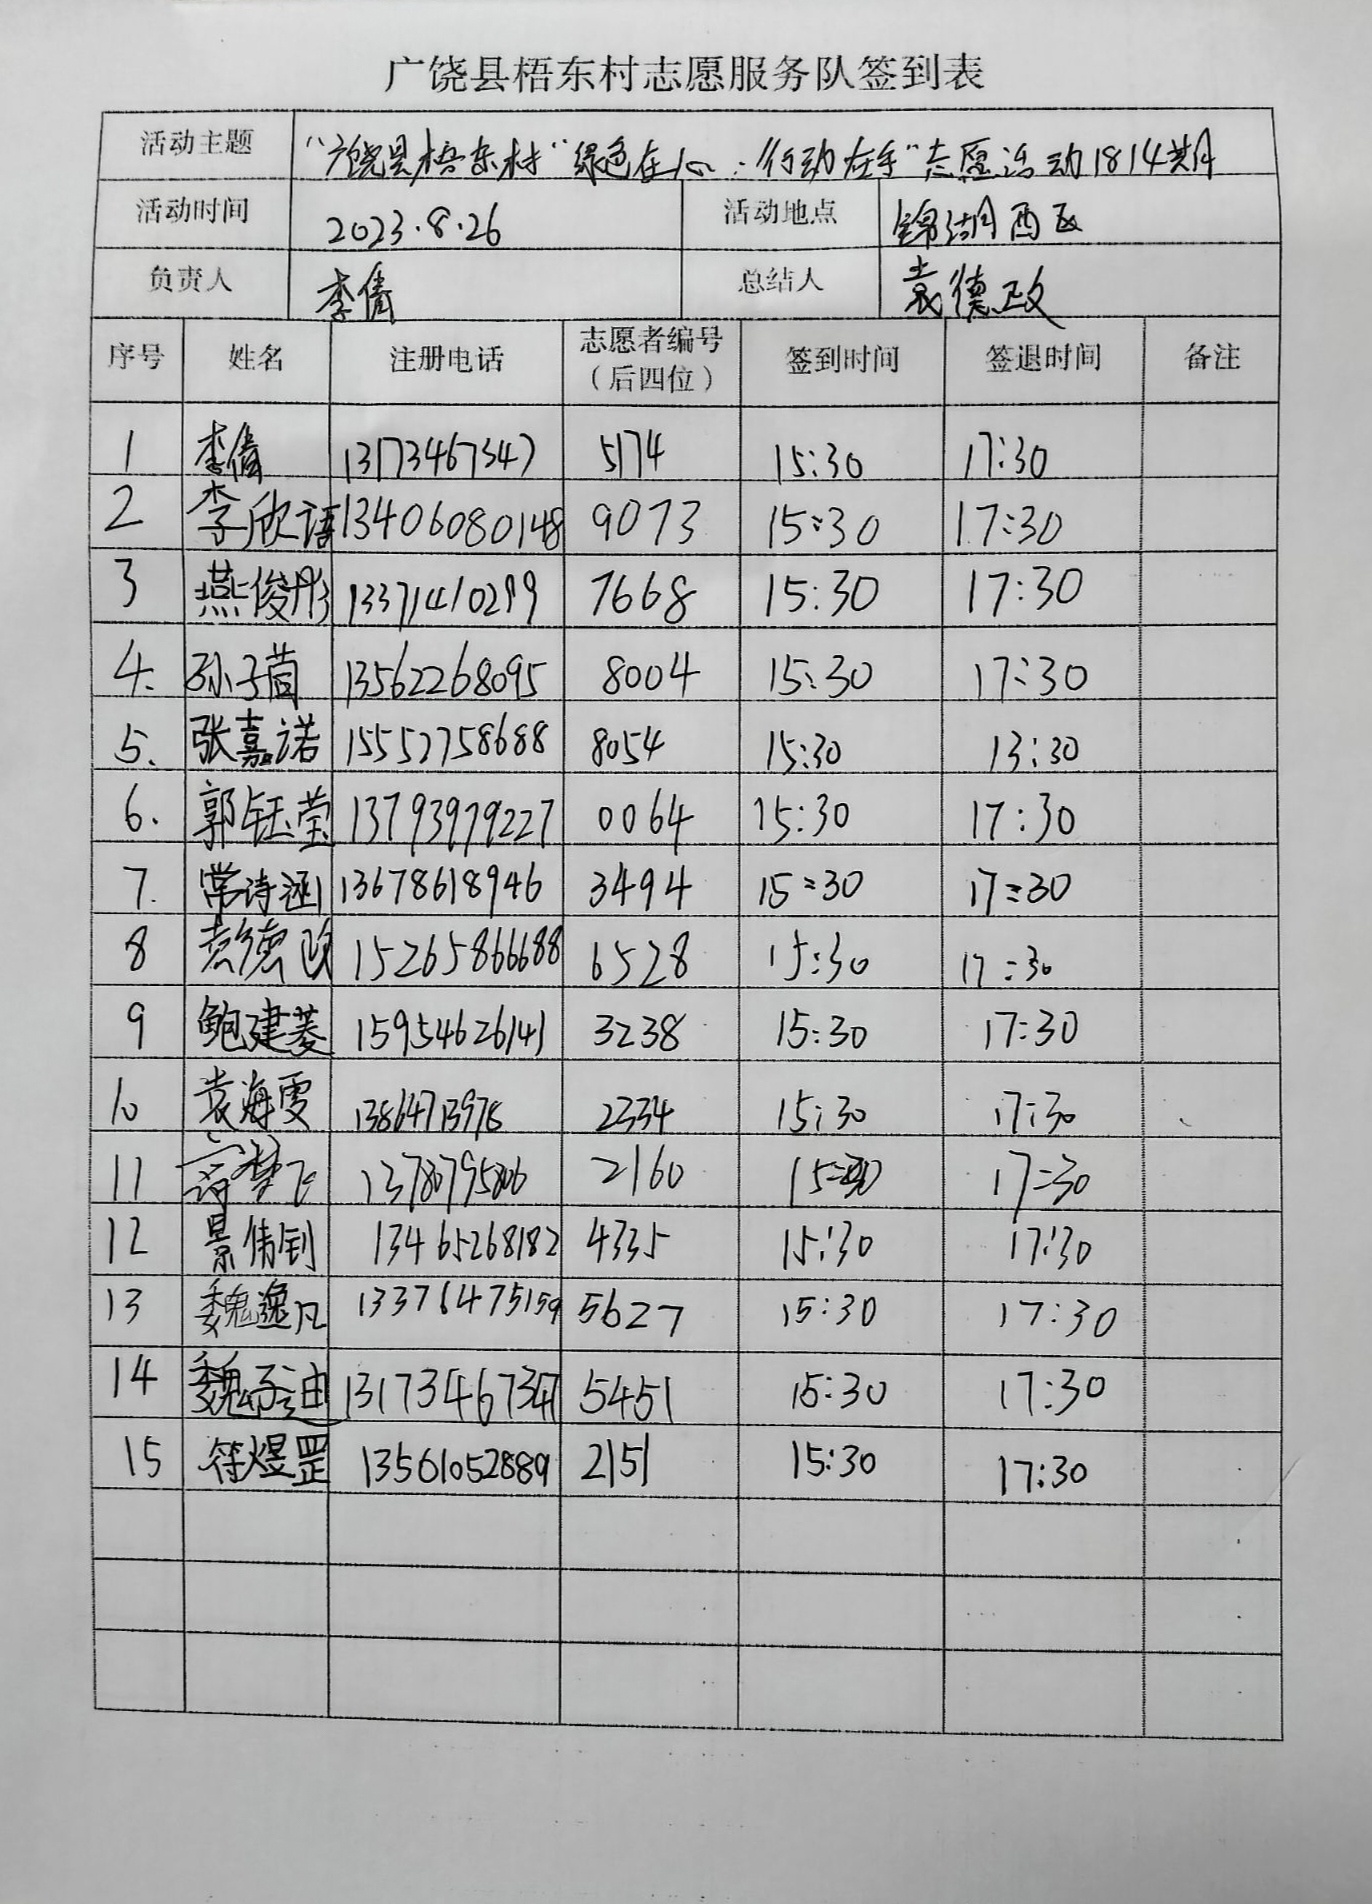 广饶县梧东村志愿服务队签到表
活动主题 "广饶县梧东村"绿色在心:行动在手"志愿活动1814期
活动时间 2023.8.26 活动地点 锦湖西区
负责人 李倩 总结人 袁德政
序号 姓名 注册电话 志愿者编号(后四位) 签到时间 签退时间 备注
1 李倩 13173467347 5174 15:30 17:30
2 李欣语 13406080148 9073 15:30 17:30
3 燕俊彤 13371410299 7668 15:30 17:30
4. 孙子茵 13562268095 8004 15:30 17:30
5. 张嘉诺 15552758688 8054 15:30 13:30
6. 郭钰莹 13793979227 0064 15:30 17:30
7. 常诗涵 13678618946 3494 15:30 17:30
8 袁德政 15265866688 6528 15:30 17:30
9 鲍建菱 15954626141 3238 15:30 17:30
10 袁海雯 2334 15:30 17:30
11 梦飞 13780795806 2160 15:30 17:30
12 景伟钊 13465268182 4335 15:30 17:30
13 魏逸凡 13376475159 5627 15:30 17:30
14 魏子迪 13173467347 5451 15:30 17:30
15 符煜罡 13561052889 2151 15:30 17:30